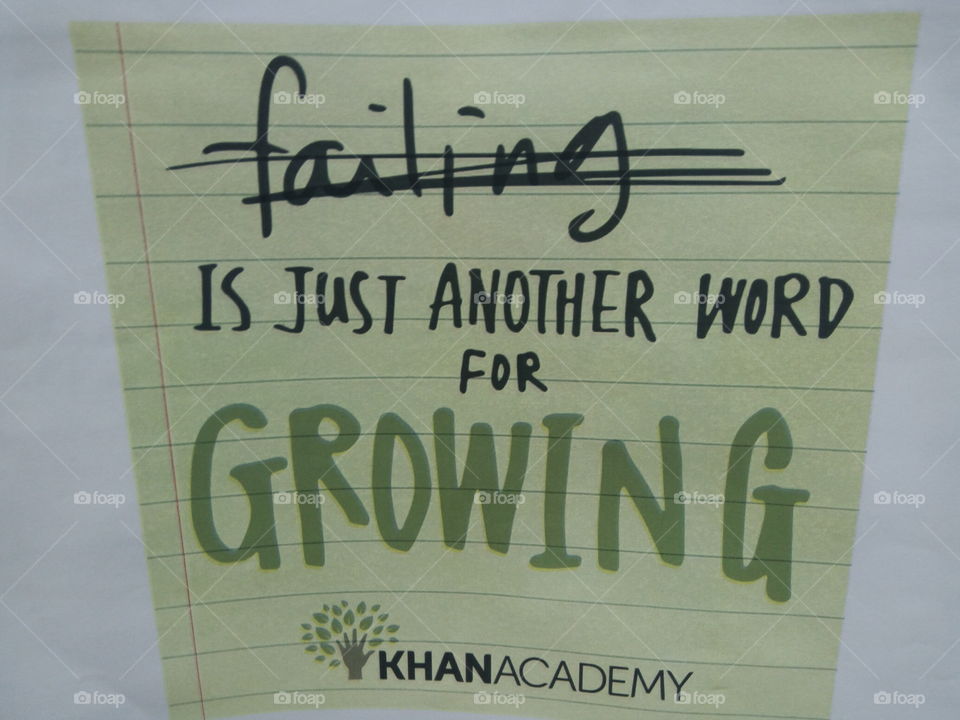 failing
IS JUST ANOTHER WORD
FOR
GROWING
KHANACADEMY
foap foap foap foap foap
foap foap foap foap foap
foap foap foap foap foap
foap foap foap foap foap